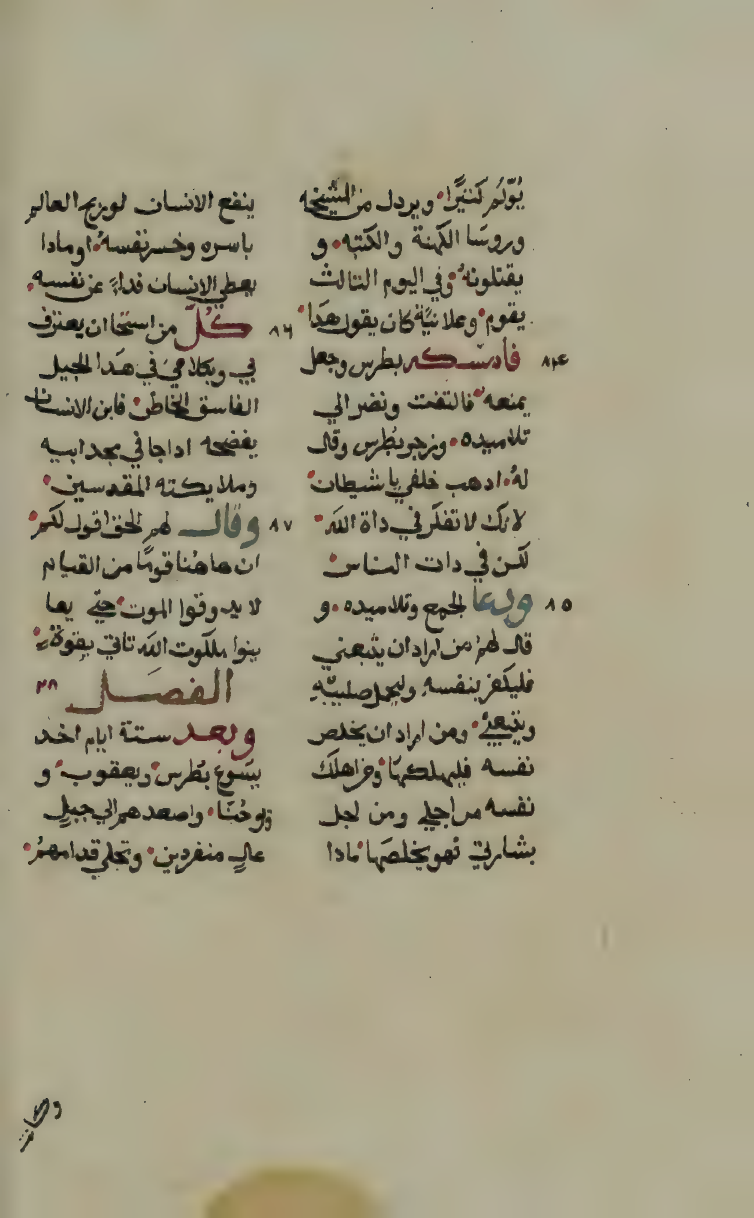 يُوّلم كثيرًا ويردل من المشيخه
وروسَا الكهنة والكتبه و
يقتلونهُ وفي اليوم التالث
يقوم وعلانيّة كان يقول هدا
٨٤ فامسكه بطرس وجعل
يمنعه فالتفت ونضر الي
تلاميده وزجر بُطرس وقال
لهُ ادهب خلفي يا شيطان
لانك لا تفكر في داة الله
لكن في دات الناس
٨٥ ودعا الجمع وتلاميده و
قال لهم من اراد ان يتبعني
فليكفر بنفسه وليحمل صليبه
ويتبعني ومن اراد ان يخلص
نفسه فليهلكها ومن اهلك
نفسه من اجلي ومن اجل
بشارتي فهو يخلصَها مادا
ينفع الانسان لو يربح العالم
باسره وخسر نفسهُ او مادا
يعطي الانسان فداءً عن نفسه
٨٦ كُلّ من استحا ان يعترف
بي وبكلامي في هَدا الجيل
الفاسق الخاطي فابن الانسان
يفضحه ادا جا في مجد ابيه
وملايكته المقدسين
٨٧ وقال لهم الحق اقول لكم
ان هاهُنا قومًا من القيام
لا يدوقوا الموت حتي يعا
ينوا ملكوت الله تاتي بقوة
الفصل ٢٨
وبعد ستة ايام اخد
يسوع بُطرس ويعقوب و
يوحُنّا واصعدهم الي جبل
عالي منفردين وتجلي قدامهمُ